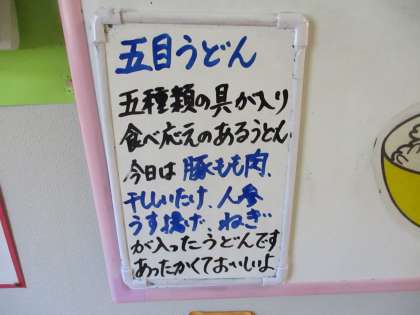 五目うどん
五種類の具が入り
食べ応えのあるうどん
今日は豚もも肉、
干ししいたけ、人参
うす揚げ、ねぎ
が入ったうどんです
あったかくておいしいよ